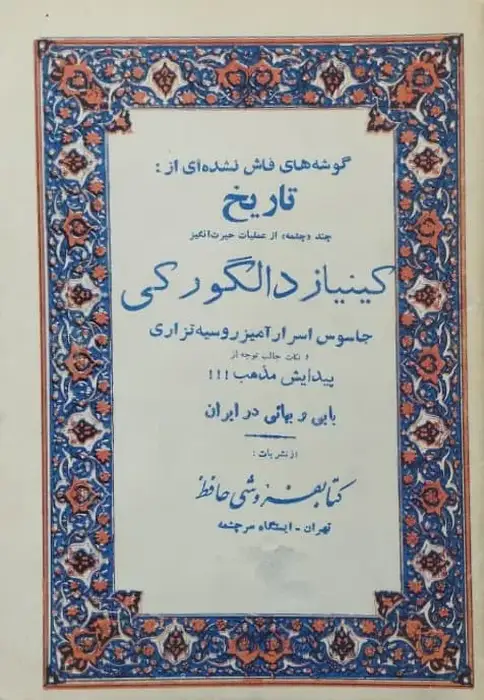 گوشه‌های فاش نشده‌ای از :
تاریخ
چند «چشمه» از عملیات حیرت‌انگیز
کینیاز دالگورکی
جاسوس اسرارآمیز روسیه تزاری
و نکات جالب توجه از
پیدایش مذهب !!!
بابی و بهائی در ایران
از نشریات :
کتابفروشی حافظ
تهران - ایستگاه سرچشمه